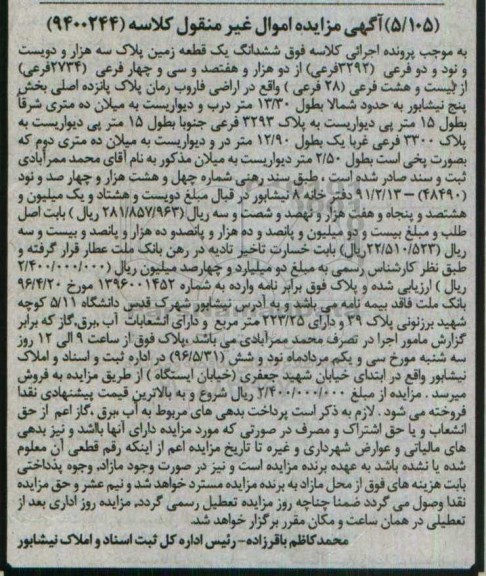 (۵/۱۰۵) آگهی مزایده اموال غیر منقول کلاسه (۹۴۰۰۲۴۴)
به موجب پرونده اجرائی کلاسه فوق ششدانگ یک قطعه زمین پلاک سه هزار و دویست
و نود و دو فرعی (۳۲۹۲فرعی) از دو هزار و هفتصد و سی و چهار فرعی (۲۷۳۴فرعی)
از بیست و هشت فرعی (۲۸ فرعی ) واقع در اراضی فاروب رمان پلاک پانزده اصلی بخش
پنج نیشابور به حدود شمالا بطول ۱۳/۳۰ متر درب و دیواریست به میلان ده متری شرقاً
بطول ۱۵ متر پی دیواریست به پلاک ۳۲۹۳ فرعی جنوبا بطول ۱۵ متر پی دیواریست به
پلاک ۳۳۰۰ فرعی غربا یک بطول ۱۲/۹۰ متر در و دیواریست به میلان ده متری دوم که
بصورت پخی است بطول ۲/۵۰ متر دیواریست به میلان مذکور به نام آقای محمد ممرآبادی
ثبت و سند صادر شده است ، طبق سند رهنی شماره چهل و هشت هزار و چهار صد و نود
(۴۸۴۹۰) – ۹۱/۲/۱۳ دفتر خانه ۸ نیشابور در قبال مبلغ دویست و هشتاد و یک میلیون و
هشتصد و پنجاه و هفت هزار و نهصد و شصت و سه ریال (۲۸۱/۸۵۷/۹۶۳ ریال ) بابت اصل
طلب و مبلغ بیست و دو میلیون و پانصد و ده هزار و پانصدو ده هزار و پانصد و بیست و سه
ریال (۲۲/۵۱۰/۵۲۳ریال) بابت خسارت تاخیر تادیه در رهن بانک ملت عطار قرار گرفته و
طبق نظر کارشناس رسمی به مبلغ دو میلیارد و چهارصد میلیون ریال (۲/۴۰۰/۰۰۰/۰۰۰
ریال ) ارزیابی شده و پلاک فوق برابر نامه وارده به شماره ۱۳۹۶۰۰۱۴۵۲ مورخ ۹۶/۴/۲۰
بانک ملت فاقد بیمه نامه می باشد و به آدرس نیشابور شهرک قدس دانشگاه ۵/۱۱ کوچه
شهید برزنونی پلاک ۳۹ و دارای ۲۲۳/۲۵ متر مربع و دارای انشعابات آب ،برق،گاز که برابر
گزارش مامور اجرا در تصرف محمد ممرآبادی می باشد ،پلاک فوق از ساعت ۹ الی ۱۲ روز
سه شنبه مورخ سی و یکم مردادماه نود و شش (۹۶/۵/۳۱) در اداره ثبت و اسناد و املاک
نیشابور واقع در ابتدای خیابان شهید جعفری (خیابان ایستگاه ) از طریق مزایده به فروش
میرسد . مزایده از مبلغ ۲/۴۰۰/۰۰۰/۰۰۰ ریال شروع و به بالاترین قیمت پیشنهادی نقدا
فروخته می شود . لازم به ذکر است پرداخت بدهی های مربوط به آب ،برق ،گاز اعم از حق
انشعاب و یا حق اشتراک و مصرف در صورتی که مورد مزایده دارای آنها باالشد و نیز بدهی
های مالیاتی و عوارض شهرداری و غیره تا تاریخ مزایده اعم از اینکه رقم قطعی آن معلوم
شده یا نشده باشد به عهده برنده مزایده است و نیز در صورت وجود مازاد، وجوه پذداختی
بابت هزینه های فوق از محل مازاد به برنده مزایده مسترد خواهد شد و نیم عشر و حق مزایده
نقدا وصول می گردد ضمنا چناچه روز مزایده تعطیل رسمی گردد، مزایده روز اداری بعد از
تعطیلی در همان ساعت و مکان مقرر برگزار خواهد شد.
محمدکاظم باقرزاده- رئیس اداره کل ثبت اسناد و املاک نیشابور